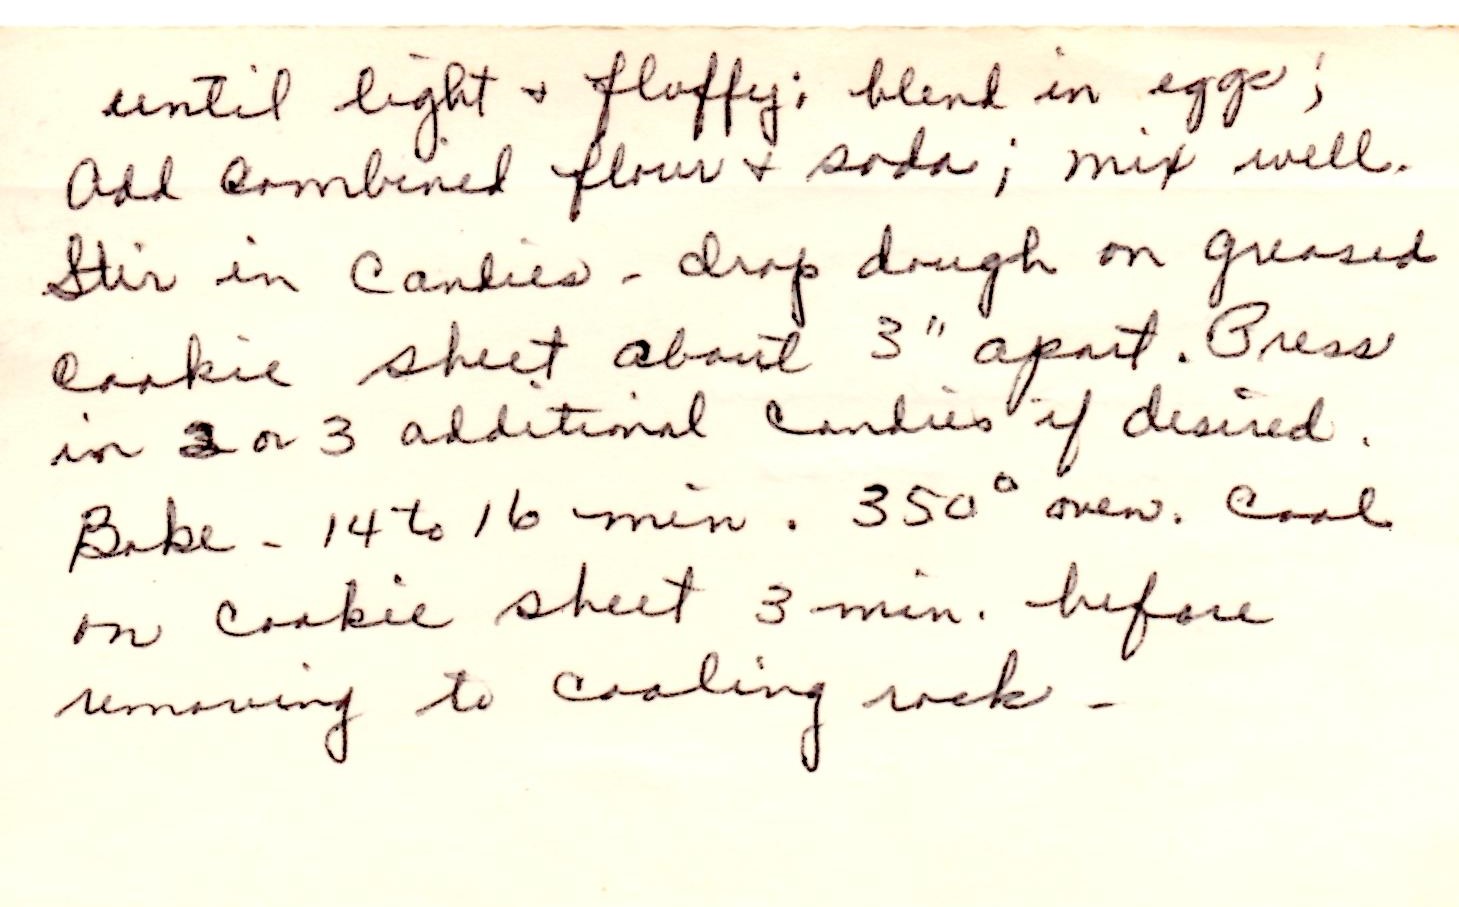 until light + fluffy; blend in eggs;
Add combined flour + soda; mix well.
Stir in Candies - drop dough on greased
cookie sheet about 3" apart. Press
in 2 or 3 additional candies if desired.
Bake - 14 to 16 min. 350° oven. Cool
on cookie sheet 3 min. before
removing to cooling rack -